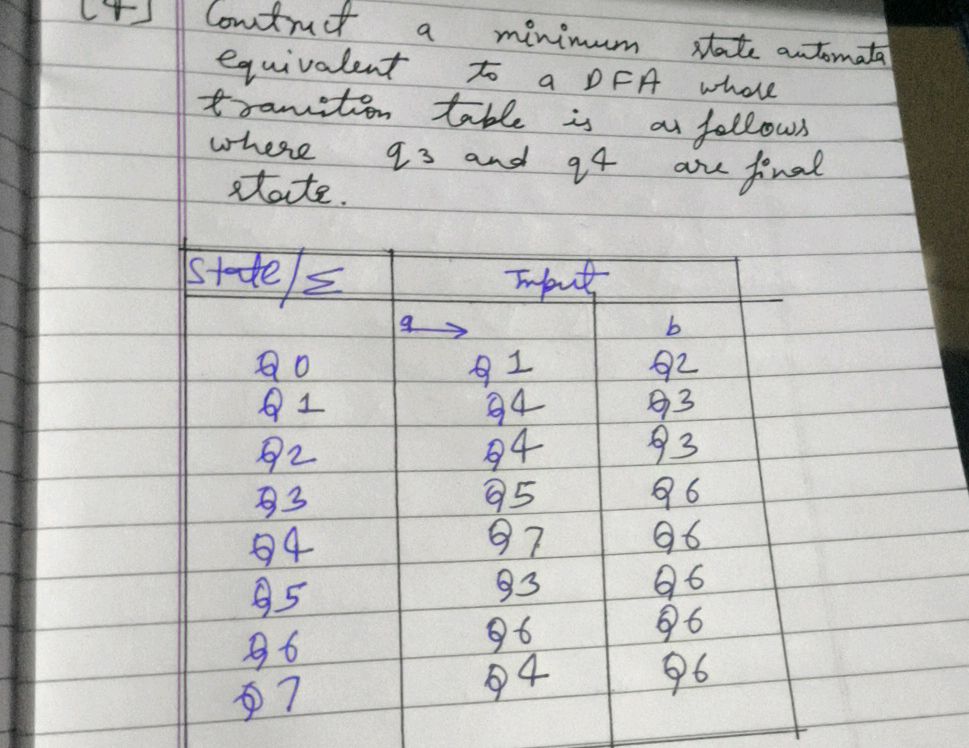 [4] Construct a minimum state automata
equivalent to a DFA whose
transition table is as follows
where q3 and q4 are final
state.
State/Σ Input
a → b
Q0 Q1 Q2
Q1 Q4 Q3
Q2 Q4 Q3
Q3 Q5 Q6
Q4 Q7 Q6
Q5 Q3 Q6
Q6 Q6 Q6
Q7 Q4 Q6